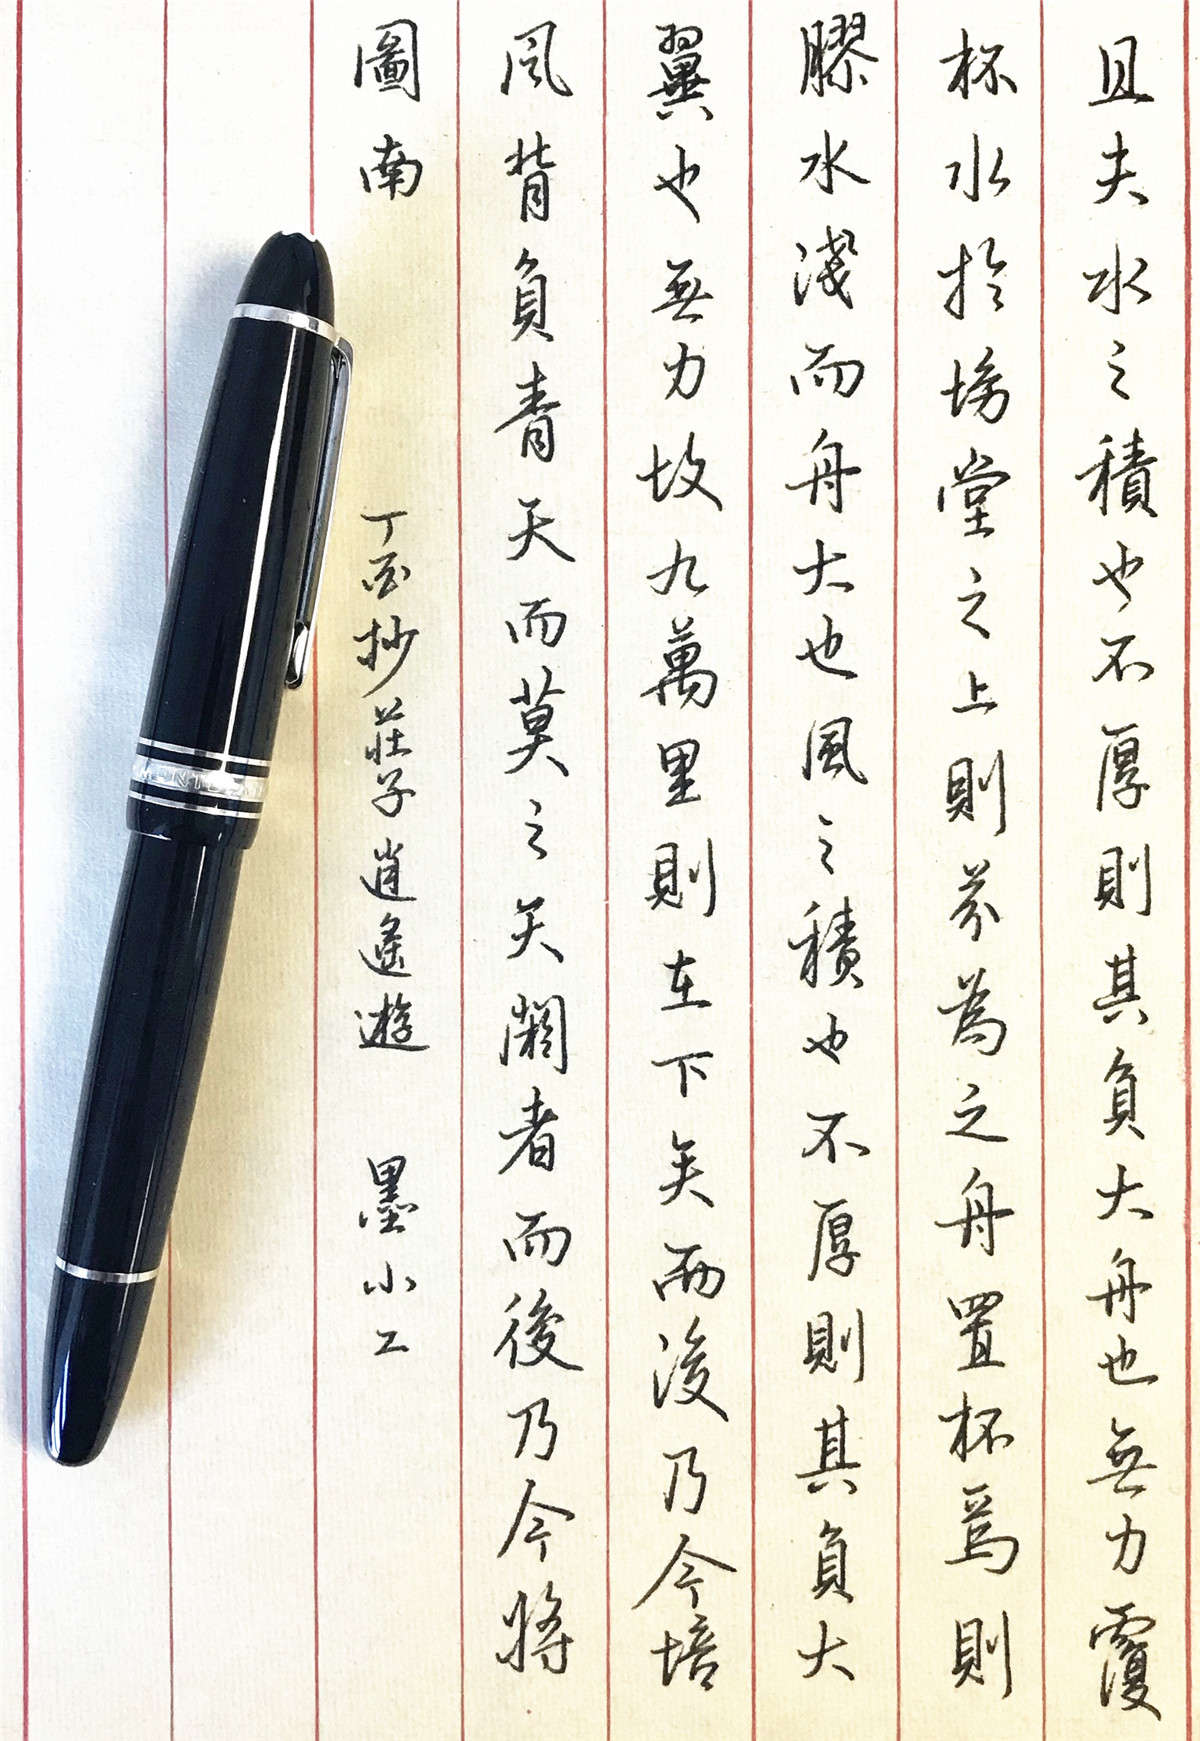 且夫水之積也不厚則其負大舟也無力覆
杯水於坳堂之上則芥為之舟置杯焉則
膠水淺而舟大也風之積也不厚則其負大
翼也無力故九萬里則在下矣而後乃今培
風背負青天而莫之夭閼者而後乃今將
圖南
丁酉抄莊子逍遙遊 墨小工